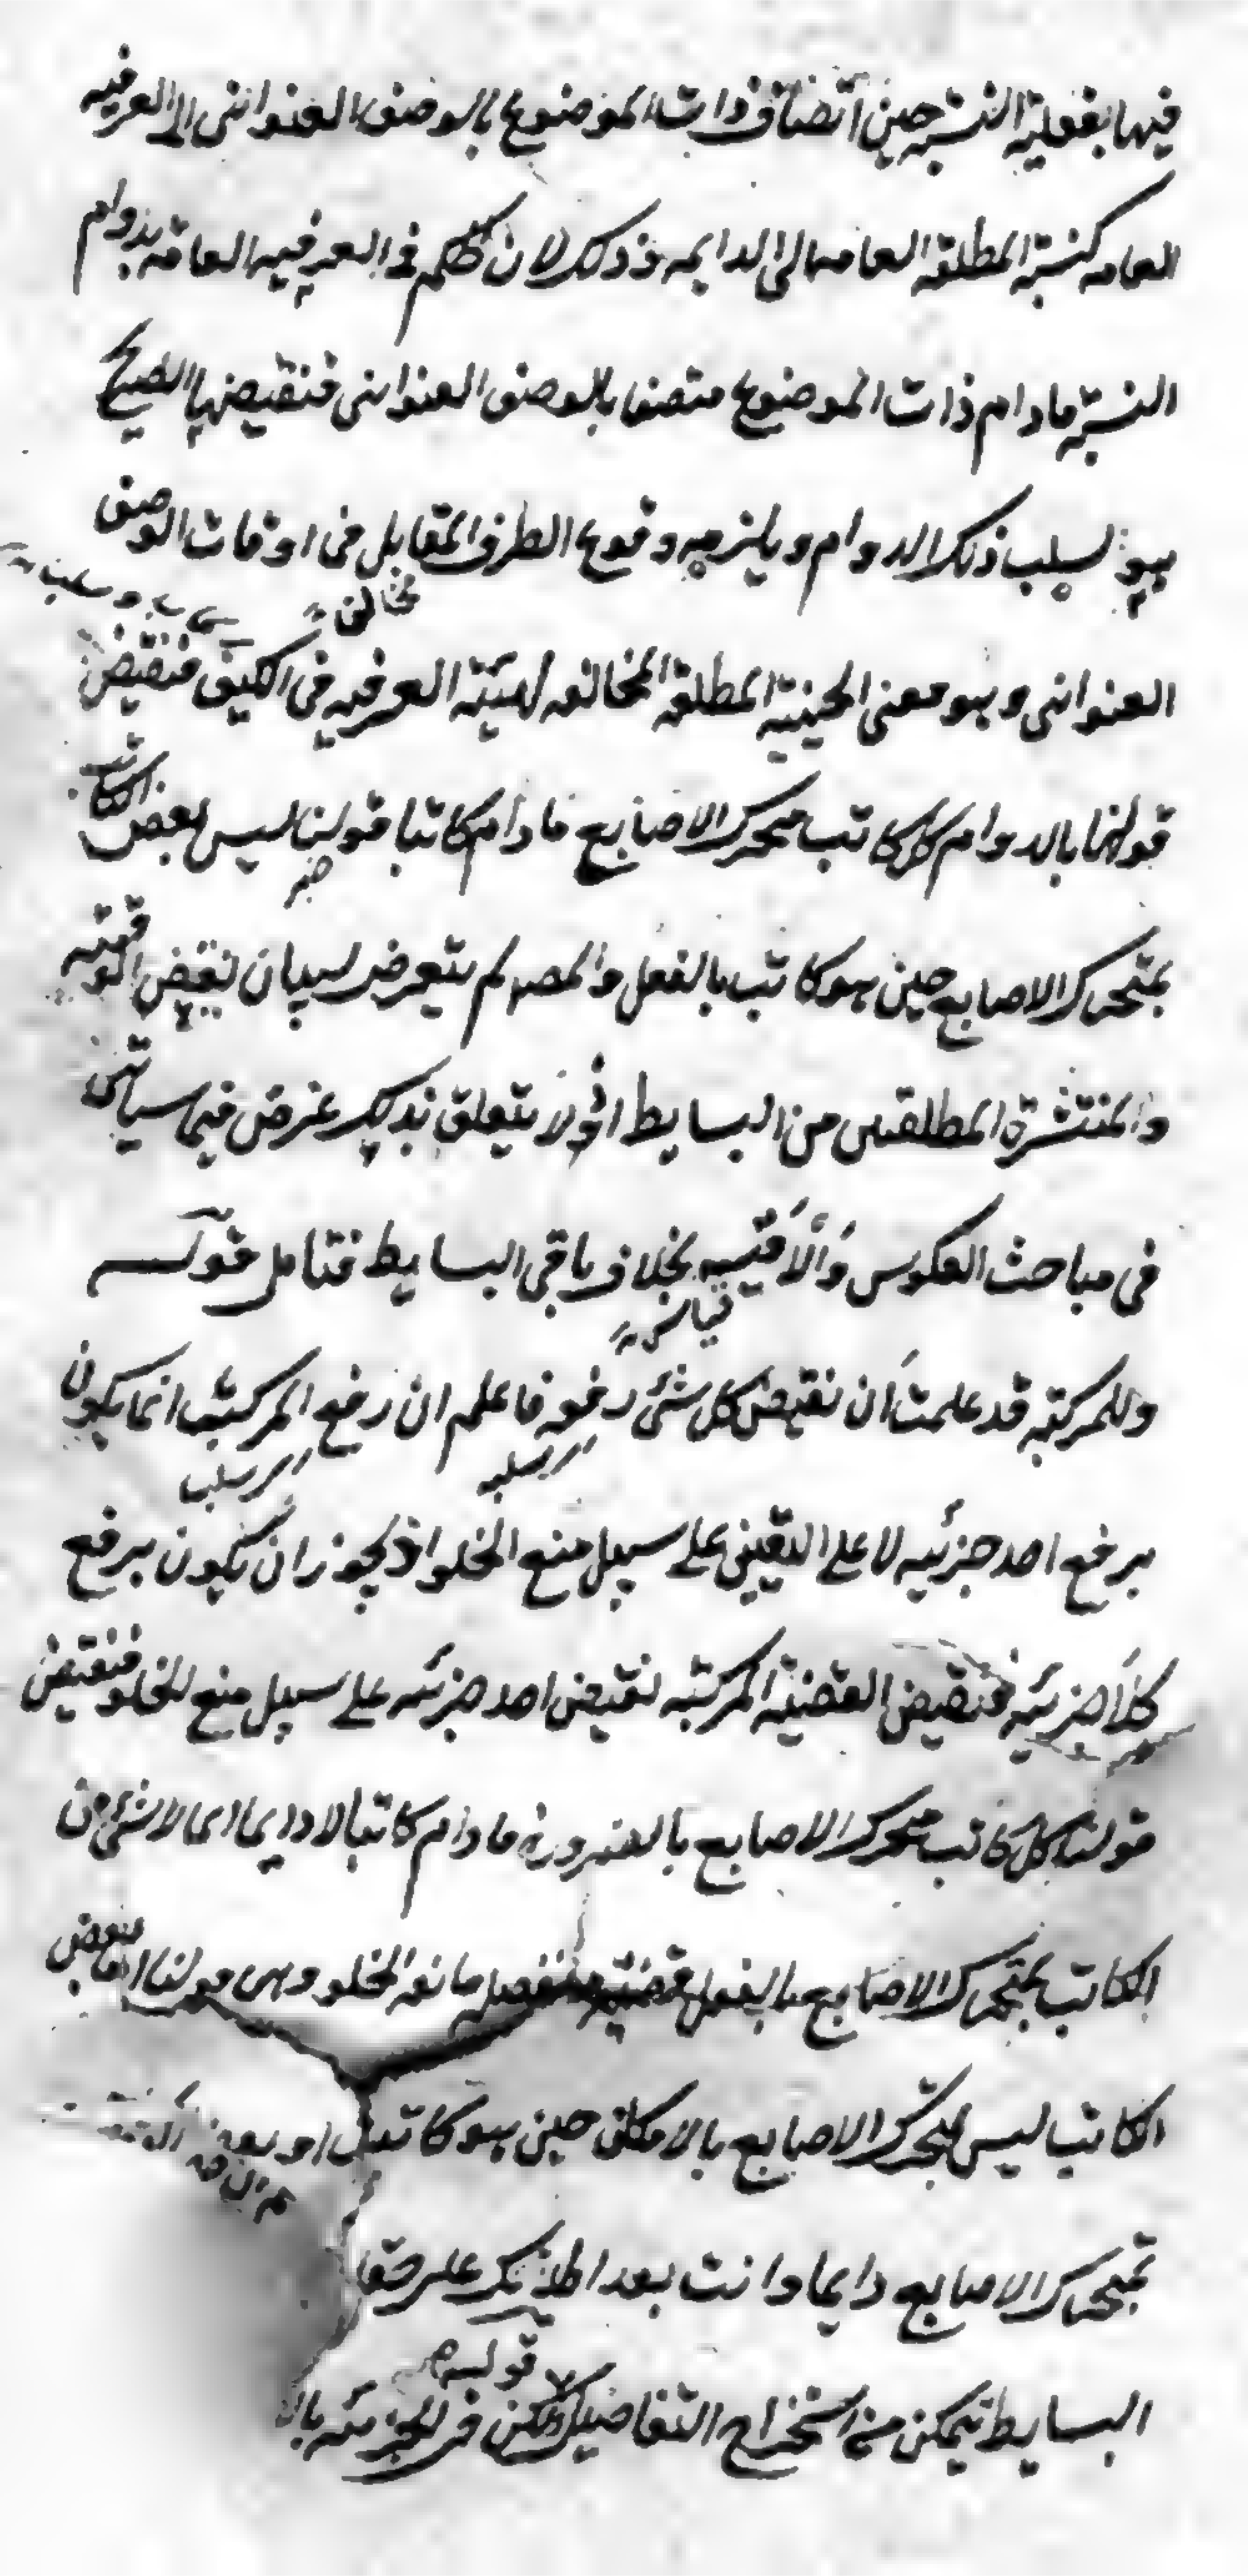 فيها بفعلية النسبة حين اتصاف ذات الموضوع بالوصف العنواني الى العرفيه
العامه كنسبة المطلقة العامه الى الدايمه وذلك لان الحكم فى العرفيه العامة بدوام
النسبة مادام ذات الموضوع متصفا بالوصف العنوانى فنقيضها الصريح
هو سلب ذلك الدوام ويلزمه وقوع الطرف المقابل فى اوقات الوصف
العنوانى وهو معنى الحينية المطلقة المخالفه للعرفيه فى الكيف فنقيض
مخالف
قولنا بالدوام كل كاتب متحرك الاصابع مادام كاتبا قولنا ليس بعض الكاتب
خبر
بمتحرك الاصابع حين هو كاتب بالفعل والمصه لم يتعرض لبيان نقيض الوقتيه
والمنتشرة المطلقتين من البسايط اذ لا يتعلق بذلك غرض فيما سياتى
فى مباحث العكوس والاقيسه بخلاف باقى البسايط فتامل قوله
وللمركبة قد علمت ان نقيض كل شئ رفعه فاعلم ان رفع المركب انما يكون
اى سلبه
اى سلب
برفع احد جزئيه لا على التعيين على سبيل منع الخلو اذ يجوز ان يكون برفع
كلا جزئيه فنقيض القضية المركبة نقيض احد جزئيه على سبيل منع الخلو فنقيض
قولنا كل كاتب متحرك الاصابع بالضرورة مادام كاتبا لا دايما اى لا شئ من
الكاتب بمتحرك الاصابع بالفعل قضية منفصله مانعة الخلو وهى قولنا اما بعض
الكاتب ليس بمتحرك الاصابع بالامكان حين هو كاتب او بعض
بمتحرك الاصابع دايما وانت بعد اطلاعك على حقا
البسايط تتمكن من استخراج التفاصيل قوله ولكن فى الجزئيه بال